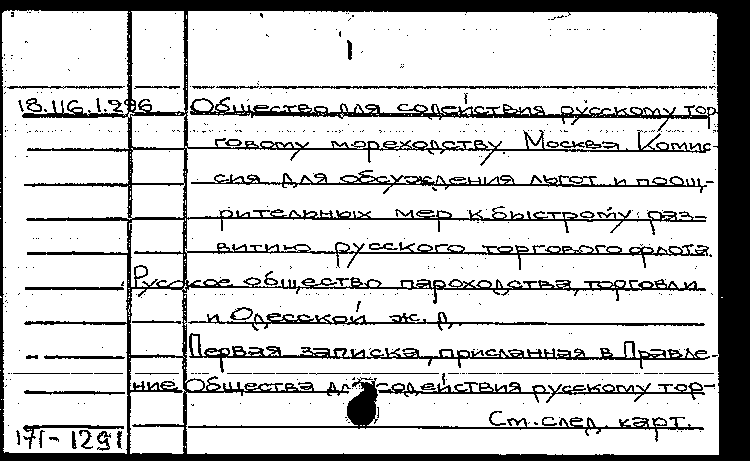 18.116.1.296 Общество для содействия русскому тор
говому мореходству. Москва. Комис-
сия для обсуждения льгот и поощ-
рительных мер к быстрому раз-
витию русского торгового флота.
Русское общество пароходства, торговли
и Одесской ж. д.
Первая записка, присланная в Правле-
ние Общества для содействия русскому тор-
См. след. карт.
171-1291